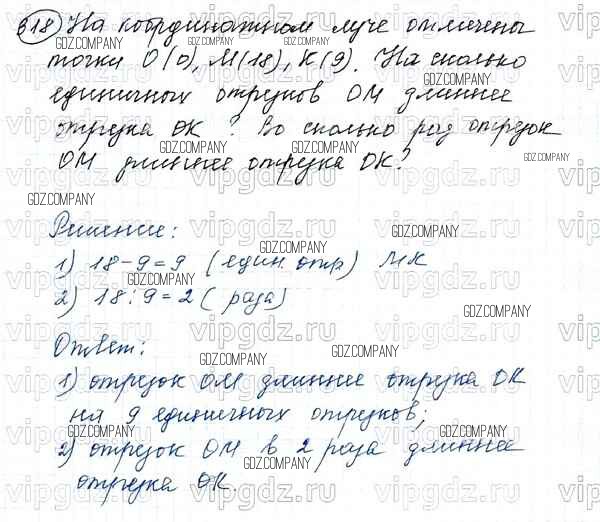 318 На координатном луче отмечены
точки O(0), M(18), K(9). На сколько
единичных отрезков OM длиннее
отрезка OK? Во сколько раз отрезок
OM длиннее отрезка OK?
Решение:
1) 18-9=9 (един. отр) MK
2) 18:9=2 (раза)
Ответ:
1) отрезок OM длиннее отрезка OK
на 9 единичных отрезков;
2) отрезок OM в 2 раза длиннее
отрезка OK.